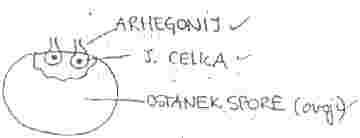 ARHEGONIJ ✓
J. CELICA ✓
OSTANEK SPORE (ovoji) ✓